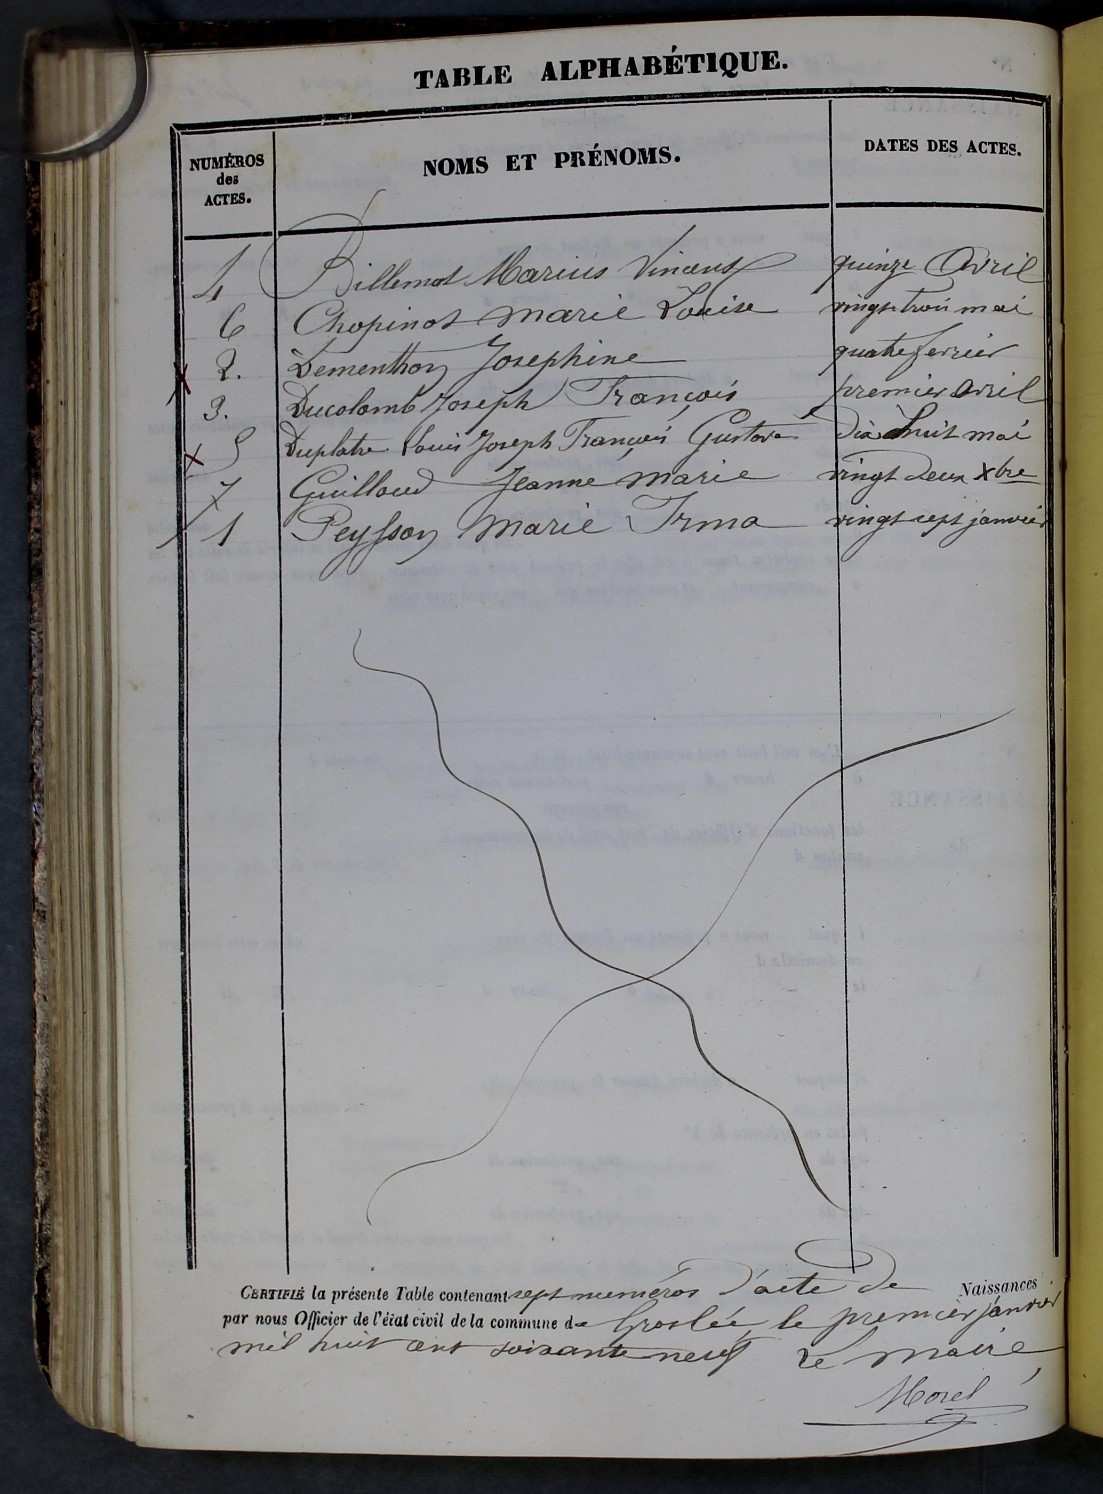 TABLE ALPHABÉTIQUE.
NUMÉROS des ACTES. NOMS ET PRÉNOMS. DATES DES ACTES.
4 Billemot Marius Vincent quinze Avril
6 Chopinot Marie Louise vingt trois mai
2. Dementhon Josephine quatre fevrier
3. Ducolomb Joseph François premier avril
5 Duplatre Louis Joseph François Gustave dix huit mai
7 Guilloud Jeanne Marie vingt deux xbre
1 Peysson Marie Irma vingt sept janvier
CERTIFIÉ la présente Table contenant sept numéros d'acte de Naissances
par nous Officier de l'état civil de la commune de Groslée, le premier janvier
mil huit cent soixante neuf Le Maire
Morel